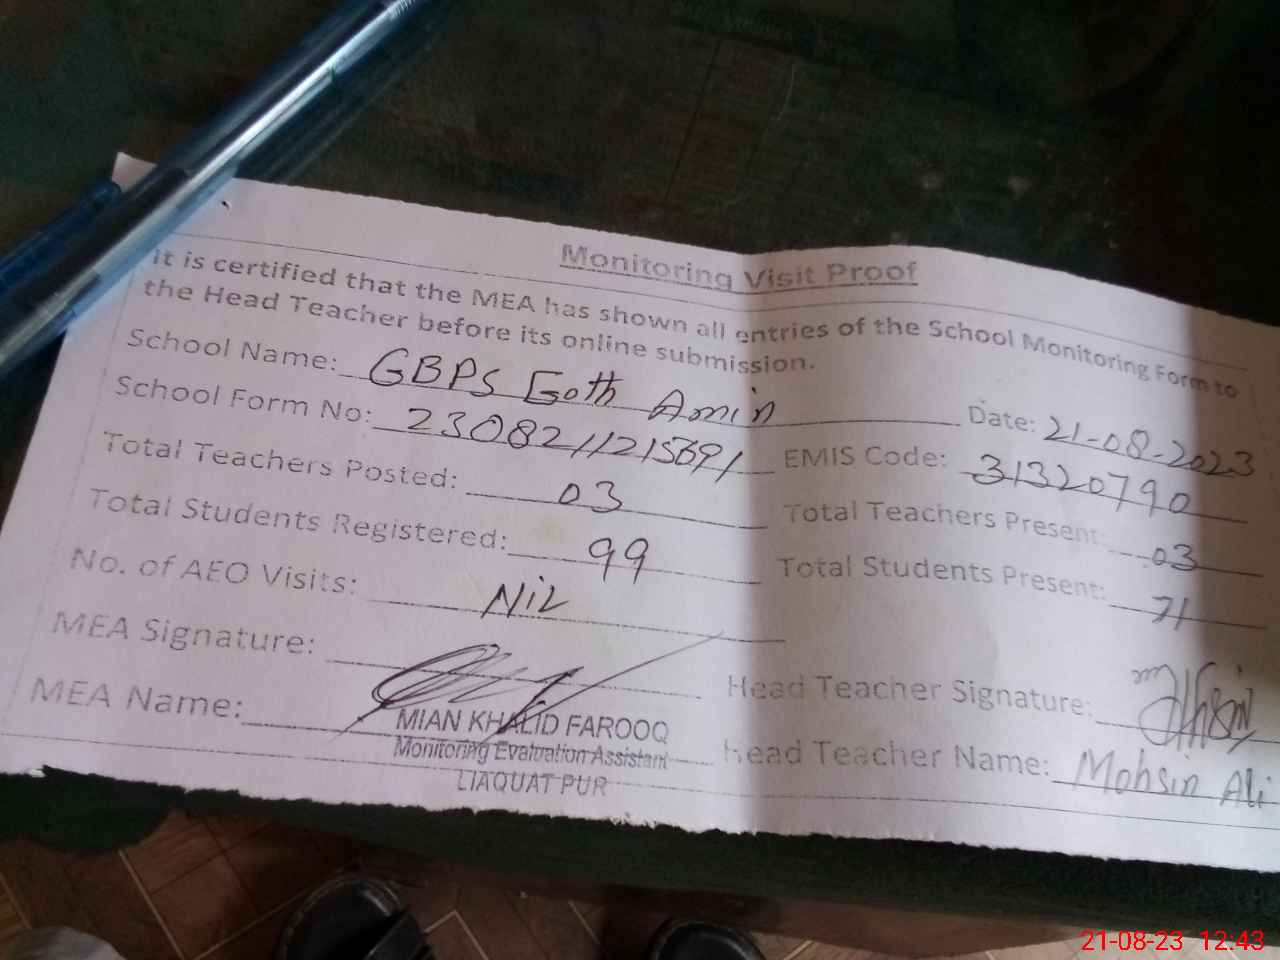 Monitoring Visit Proof
it is certified that the MEA has shown all entries of the School Monitoring Form to
the Head Teacher before its online submission.
School Name: GBPS Goth Amin Date: 21-08-2023
School Form No: EMIS Code: 31320790
Total Teachers Posted: 03 Total Teachers Present: 03
Total Students Registered: 99 Total Students Present: 71
No. of AEO Visits: Nil
MEA Signature: Head Teacher Signature:
MEA Name: MIAN KHALID FAROOQ Head Teacher Name: Mohsin Ali
Monitoring Evaluation Assistant
LIAQUAT PUR
21-08-23 12:43